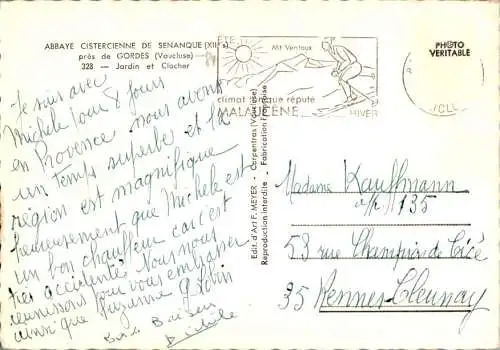 ABBAYE CISTERCIENNE DE SENANQUE (XIIe s)
près de GORDES (Vaucluse)
328 — Jardin et Clocher
ETE
Mt Ventoux
climat tonique réputé
MALAUCENE
HIVER
PHOTO
VERITABLE
Je suis avec
Michèle pour 8 jours
en Provence nous avons
un temps superbe et la
région est magnifique
heureusement que Michèle est
un bon chauffeur car c'est
très accidenté. Nous nous
réunissons pour vous embrasser
ainsi que Suzanne
Bons Baisers
Michèle
Edit. d'Art F. MEYER - Carpentras (Vaucluse)
Reproduction interdite - Fabrication française
Madame Kauffmann
135
53 rue Champion de Cicé
35 Rennes-Cleunay